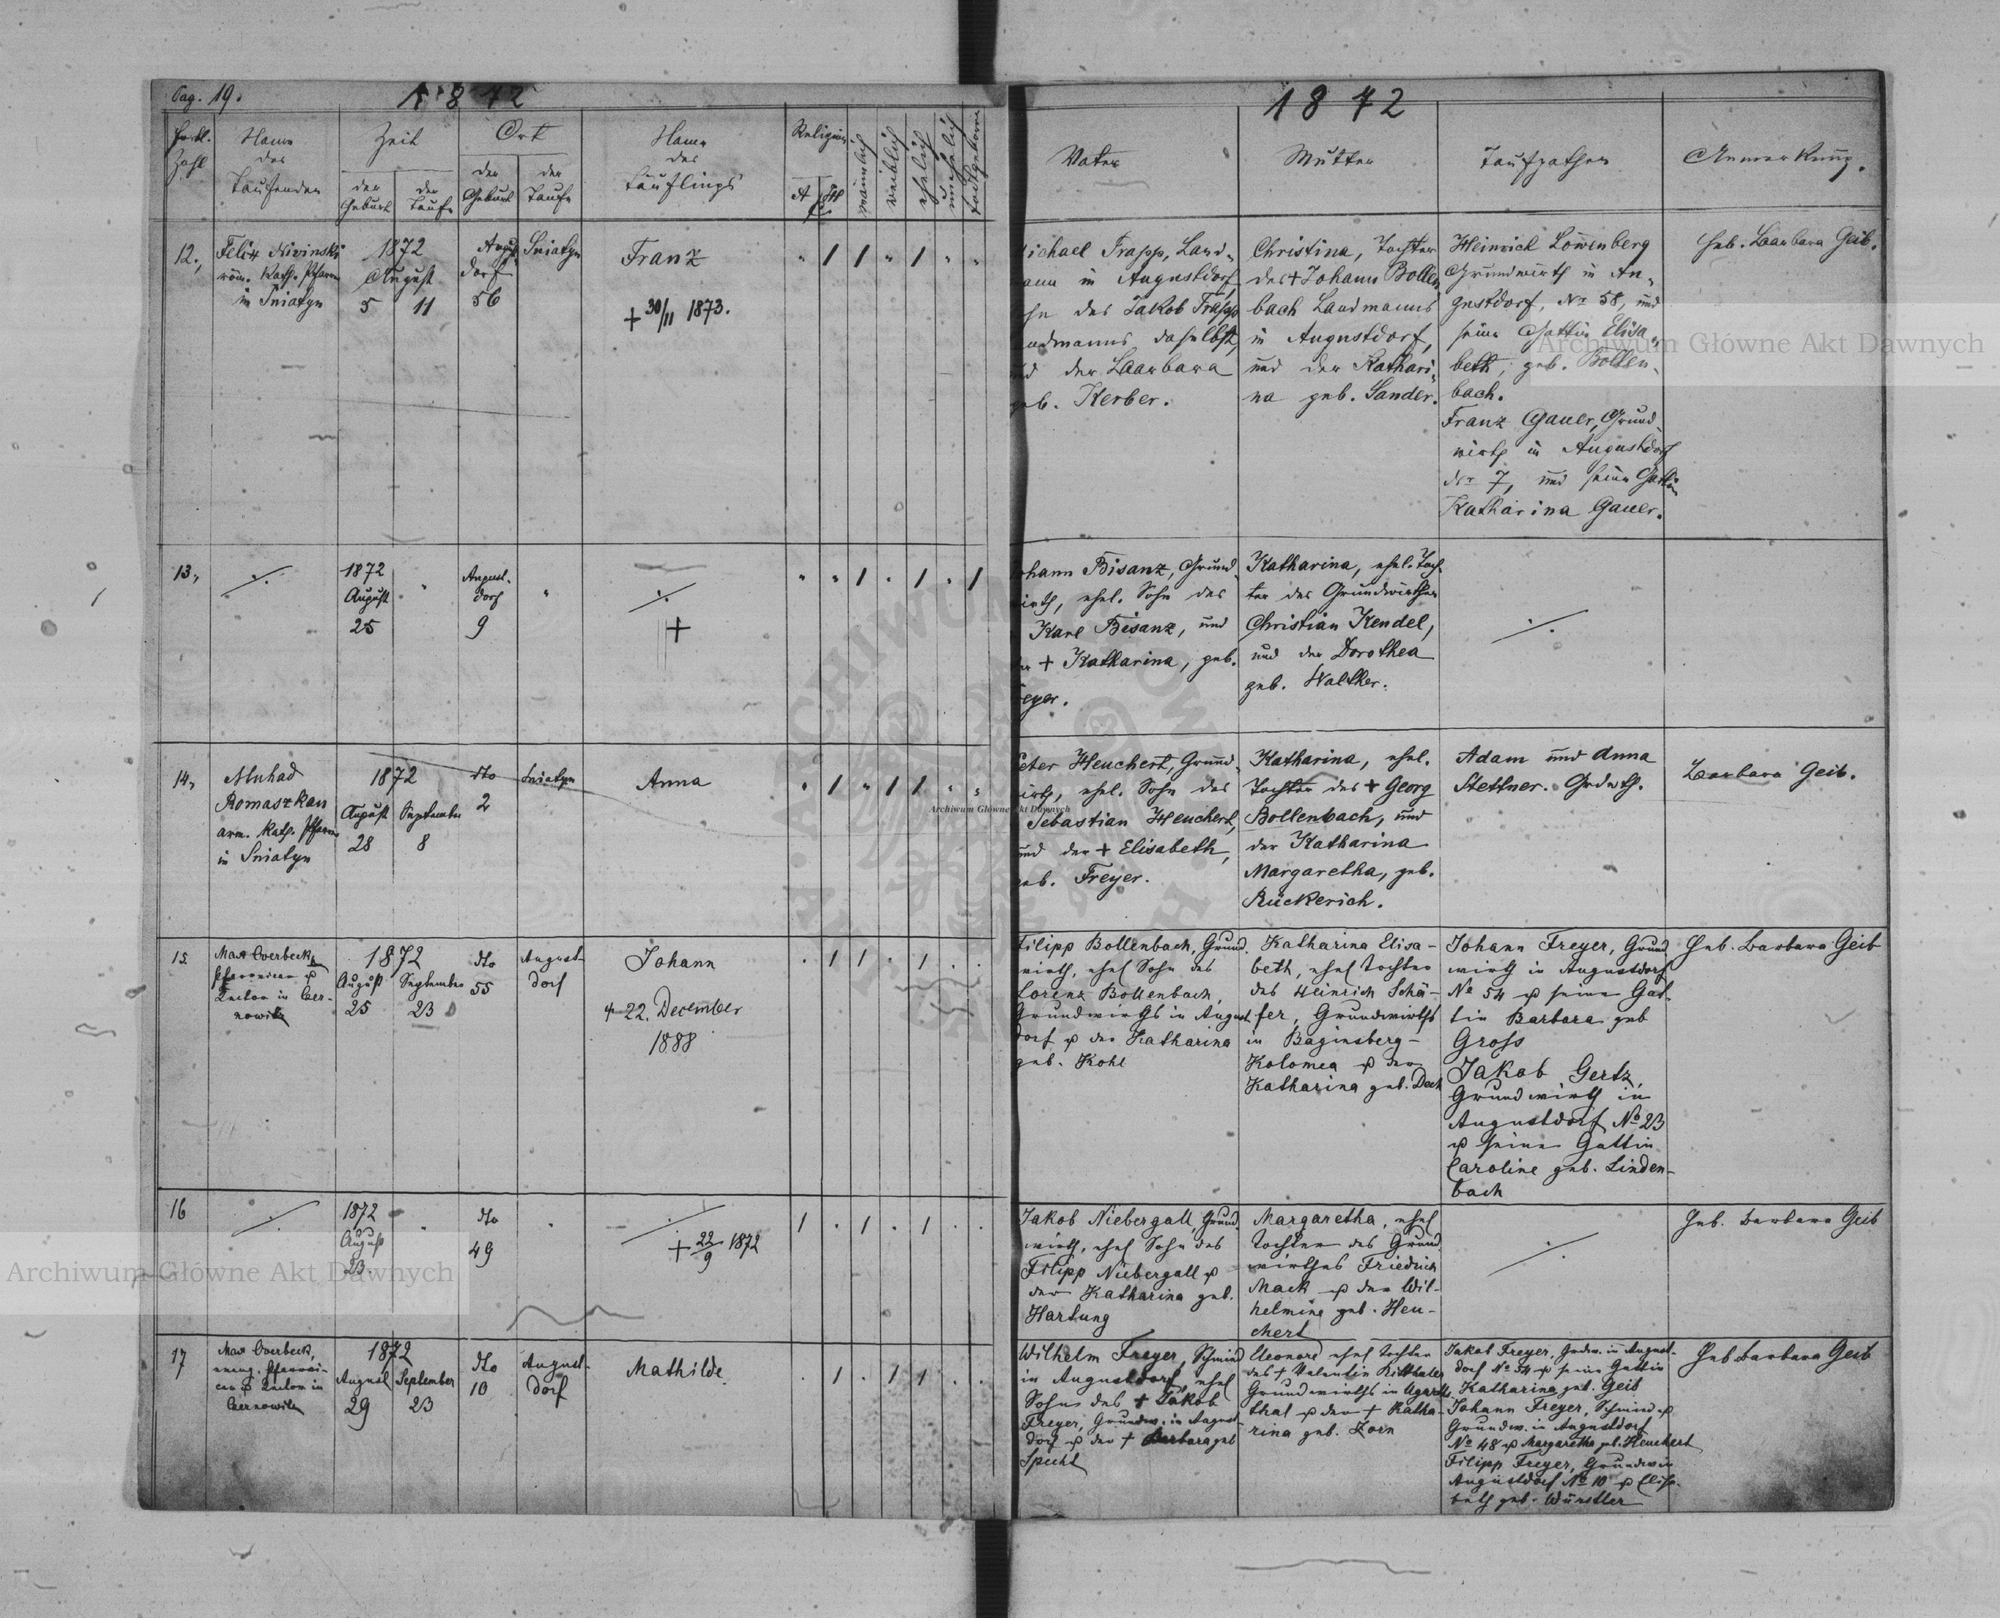 Pag. 19.
1872
Fortl. Zahl
Name des Taufenden
Zeit
der Geburt
der Taufe
Ort
der Geburt
der Taufe
Name des Täuflings
Religion
A
H
männlich
weiblich
ehelich
unehelich
todtgeborn
1872
Vater
Mutter
Taufpathen
Anmerkung.
12.,
Felix Nivinski
röm. Kath. Pfarrer
in Sniatyn
1872
August
5 11
August-
dorf
56
Sniatyn
Franz
+ 30/11 1873.
Michael Trapp, Land-
mann in Augustdorf
des Jakob Trapp
Landmanns daselbst,
und der Baarbara
geb. Kerber.
Christina, Tochter
des + Johann Bollen
bach Landmanns
in Augustdorf,
und der Kathari-
na geb. Sander.
Heinrich Löwenberg
Grundwirth in Au-
gustdorf, Nr 58, und
seine Gattin Elisa-
beth, geb. Bollen-
bach.
Franz Gauer, Grund-
wirth in Augustdorf
Nr 7, und seine Gattin
Katharina Gauer.
Heb. Baarbara Geib.
13,
1872
August
25
August-
dorf
9
+
Johann Bisanz, Grund-
wirth, ehel. Sohn des
Karl Bisanz, und
der + Katharina, geb.
Freyer.
Katharina, ehel. Toch-
ter des Grundwirthen
Christian Kendel,
und der Dorothea
geb. Walther.
14,
Muhad
Romaszkan
arm. Kath. Pfarrer
in Sniatyn
1872
August September
28 8
dto
2
Sniatyn
Anna
Peter Heuchert, Grund-
wirth, ehel. Sohn des
Sebastian Heuchert,
und der + Elisabeth,
geb. Freyer.
Katharina, ehel.
Tochter des + Georg
Bollenbach, und
der Katharina
Margaretha, geb.
Rückerich.
Adam und Anna
Stettner. Grdwth.
Barbara Geib.
15
Max Overbeck,
Pfarrvicar u
Rector in Czer-
nowitz
1872
August September
25 23
dto
55
August-
dorf
Johann
+ 22. December
1888
Filipp Bollenbach, Grund-
wirth, ehel Sohn des
Lorenz Bollenbach,
Grundwirths in August
dorf u der Katharina
geb. Kohl
Katharina Elisa-
beth, ehel Tochter
des Heinrich Schä-
fer, Grundwirths
in Baginsberg-
Kolomea u der
Katharina geb. Dech
Johann Freyer, Grund
wirth in Augustdorf
No 54 u seine Gat-
tin Barbara geb
Gross
Jakob Gertz,
Grundwirth in
Augustdorf No 23
u seine Gattin
Caroline geb. Linden-
bach
Heb. Barbara Geib
16
1872
August
23.
dto
49
+ 22/9 1872
Jakob Niebergall Grund-
wirth, ehel Sohn des
Filipp Niebergall u
der Katharina geb.
Hartung
Margaretha, ehel
Tochter des Grund
wirthes Friedrich
Mack u der Wil-
helmine geb. Heu-
chert
Heb. Barbara Geib
17
Max Overbeck,
evang. Pfarrvi-
car u Rector in
Czernowitz
1872
August September
29 23
dto
10
August-
dorf
Mathilde
Wilhelm Freyer, Schmied
in Augustdorf, ehel
Sohn des + Jakob
Freyer, Grundw. in August
dorf u der + Barbara geb
Specht
Eleonore ehel Tochter
des + Valentin Ritthaler
Grundwirths in Ugarts-
thal u der + Katha-
rina geb. Zorn
Jakob Freyer, Grdw. in August-
dorf No 54 u seine Gattin
Katharina geb. Geib
Johann Freyer, Schmied u
Grundw. in Augustdorf
No 48 u Margaretha geb. Heuchert
Filipp Freyer, Grundw in
Augustdorf No 10 u Elisa-
beth geb. Würstler
Heb Barbara Geib
Archiwum Główne Akt Dawnych
Archiwum Główne Akt Dawnych
Archiwum Główne Akt Dawnych